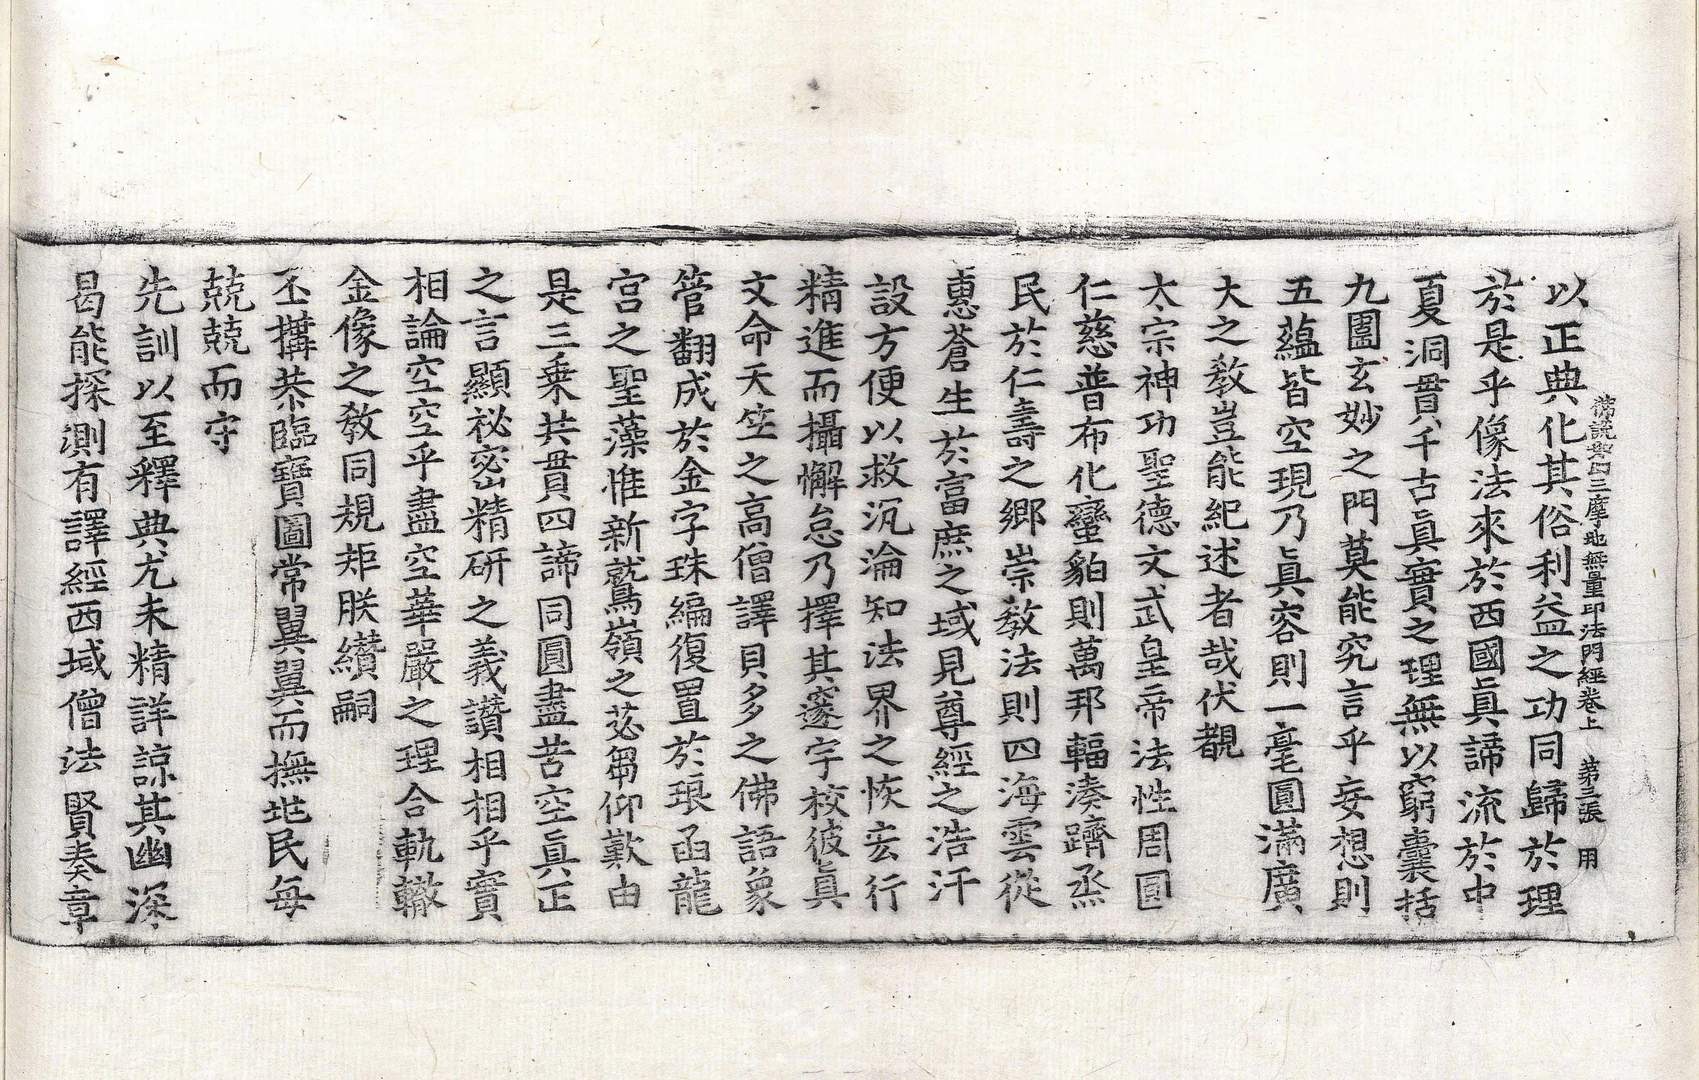 佛說聖四三摩地無量印法門經卷上 第三張 用
以正典化其俗利益之功同歸於理
於是乎像法來於西國眞諦流於中
夏洞貫千古眞實之理無以窮囊括
九圍玄妙之門莫能究言乎妄想則
五蘊皆空現乃眞容則一毫圓滿廣
大之教豈能紀述者哉伏覩
太宗神功聖德文武皇帝法性周圓
仁慈普布化蠻貊則萬邦輻湊躋烝
民於仁壽之鄉崇教法則四海雲從
惠蒼生於富庶之域見尊經之浩汗
設方便以救沉淪知法界之恢宏行
精進而攝懈怠乃擇其邃宇校彼眞
文命天竺之高僧譯貝多之佛語象
管翻成於金字珠編復置於琅函龍
宮之聖藻惟新鷲嶺之苾芻仰歎由
是三乘共貫四諦同圓盡苦空眞正
之言顯祕密精研之義讚相相乎實
相論空空乎盡空華嚴之理合軌轍
金像之教同規矩朕纘嗣
丕搆恭臨寶圖常翼翼而撫茫民每
兢兢而守
先訓以至釋典尤未精詳諒其幽深
曷能探測有譯經西域僧法賢奏章